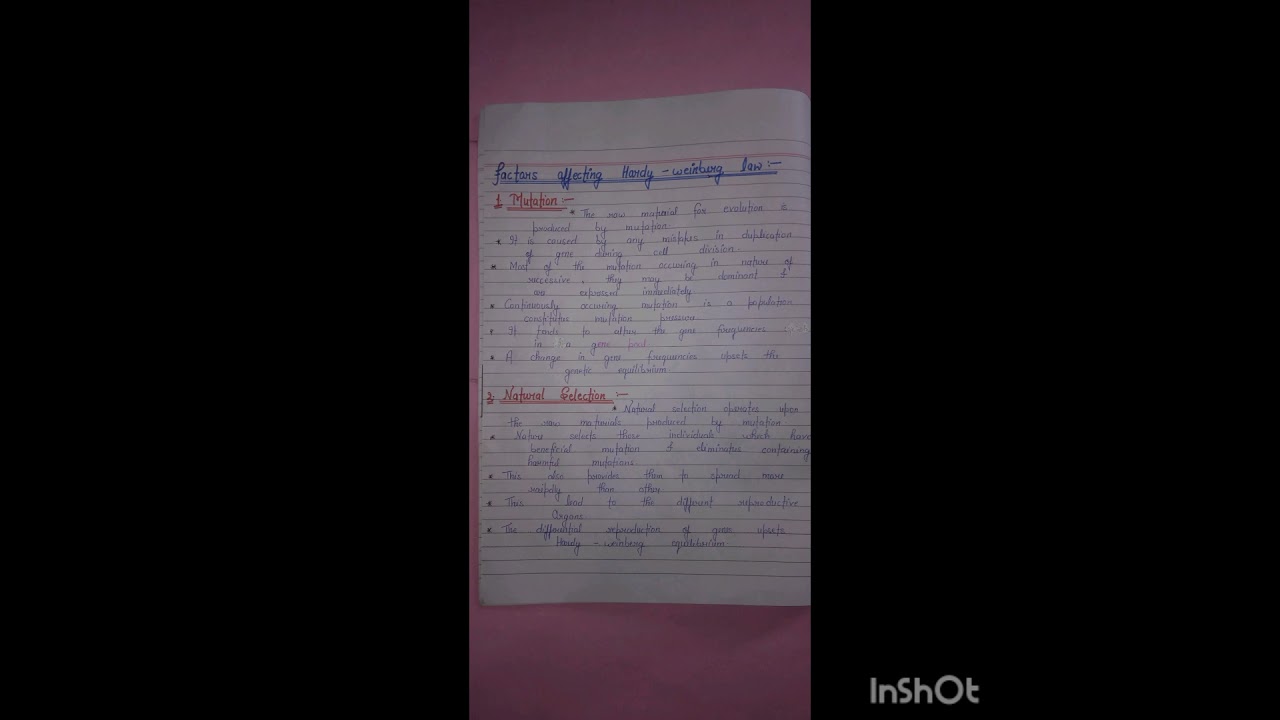 Factors affecting Hardy - weinburg law :-
1. Mutation :-
* The raw material for evolution is
produced by mutation.
* It is caused by any mistakes in duplication
of gene during cell division.
* Most of the mutation occuring in nature of
successive, they may be dominant &
expressed immediately
* Continuously occuring mutation is a population
constitutes mutation pressure.
* It tends to alter the gene frequencies
in a gene pool
* A change in gene frequencies upsets the
genetic equilibrium.
2. Natural Selection :-
* Natural selection operates upon
the raw materials produced by mutation.
* Nature selects those individuals which have
beneficial mutation & eliminates containing
harmful mutations.
* This also provides them to spread more
rapidly than other
* This lead to the different reproductive
Organs.
* The differential reproduction of gene upsets
Hardy - weinberg equilibrium.
InShOt